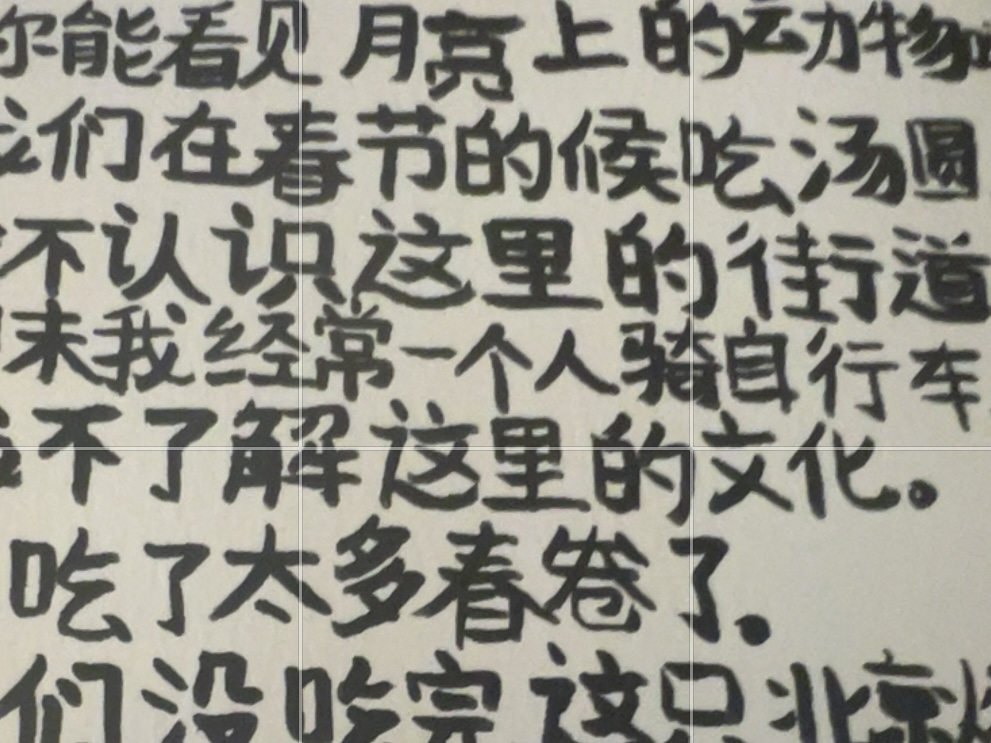 你能看见月亮上的动物
我们在春节的候吃汤圆
不认识这里的街道
末我经常一个人骑自行车
不了解这里的文化。
吃了太多春卷了.
们没吃完这只北京